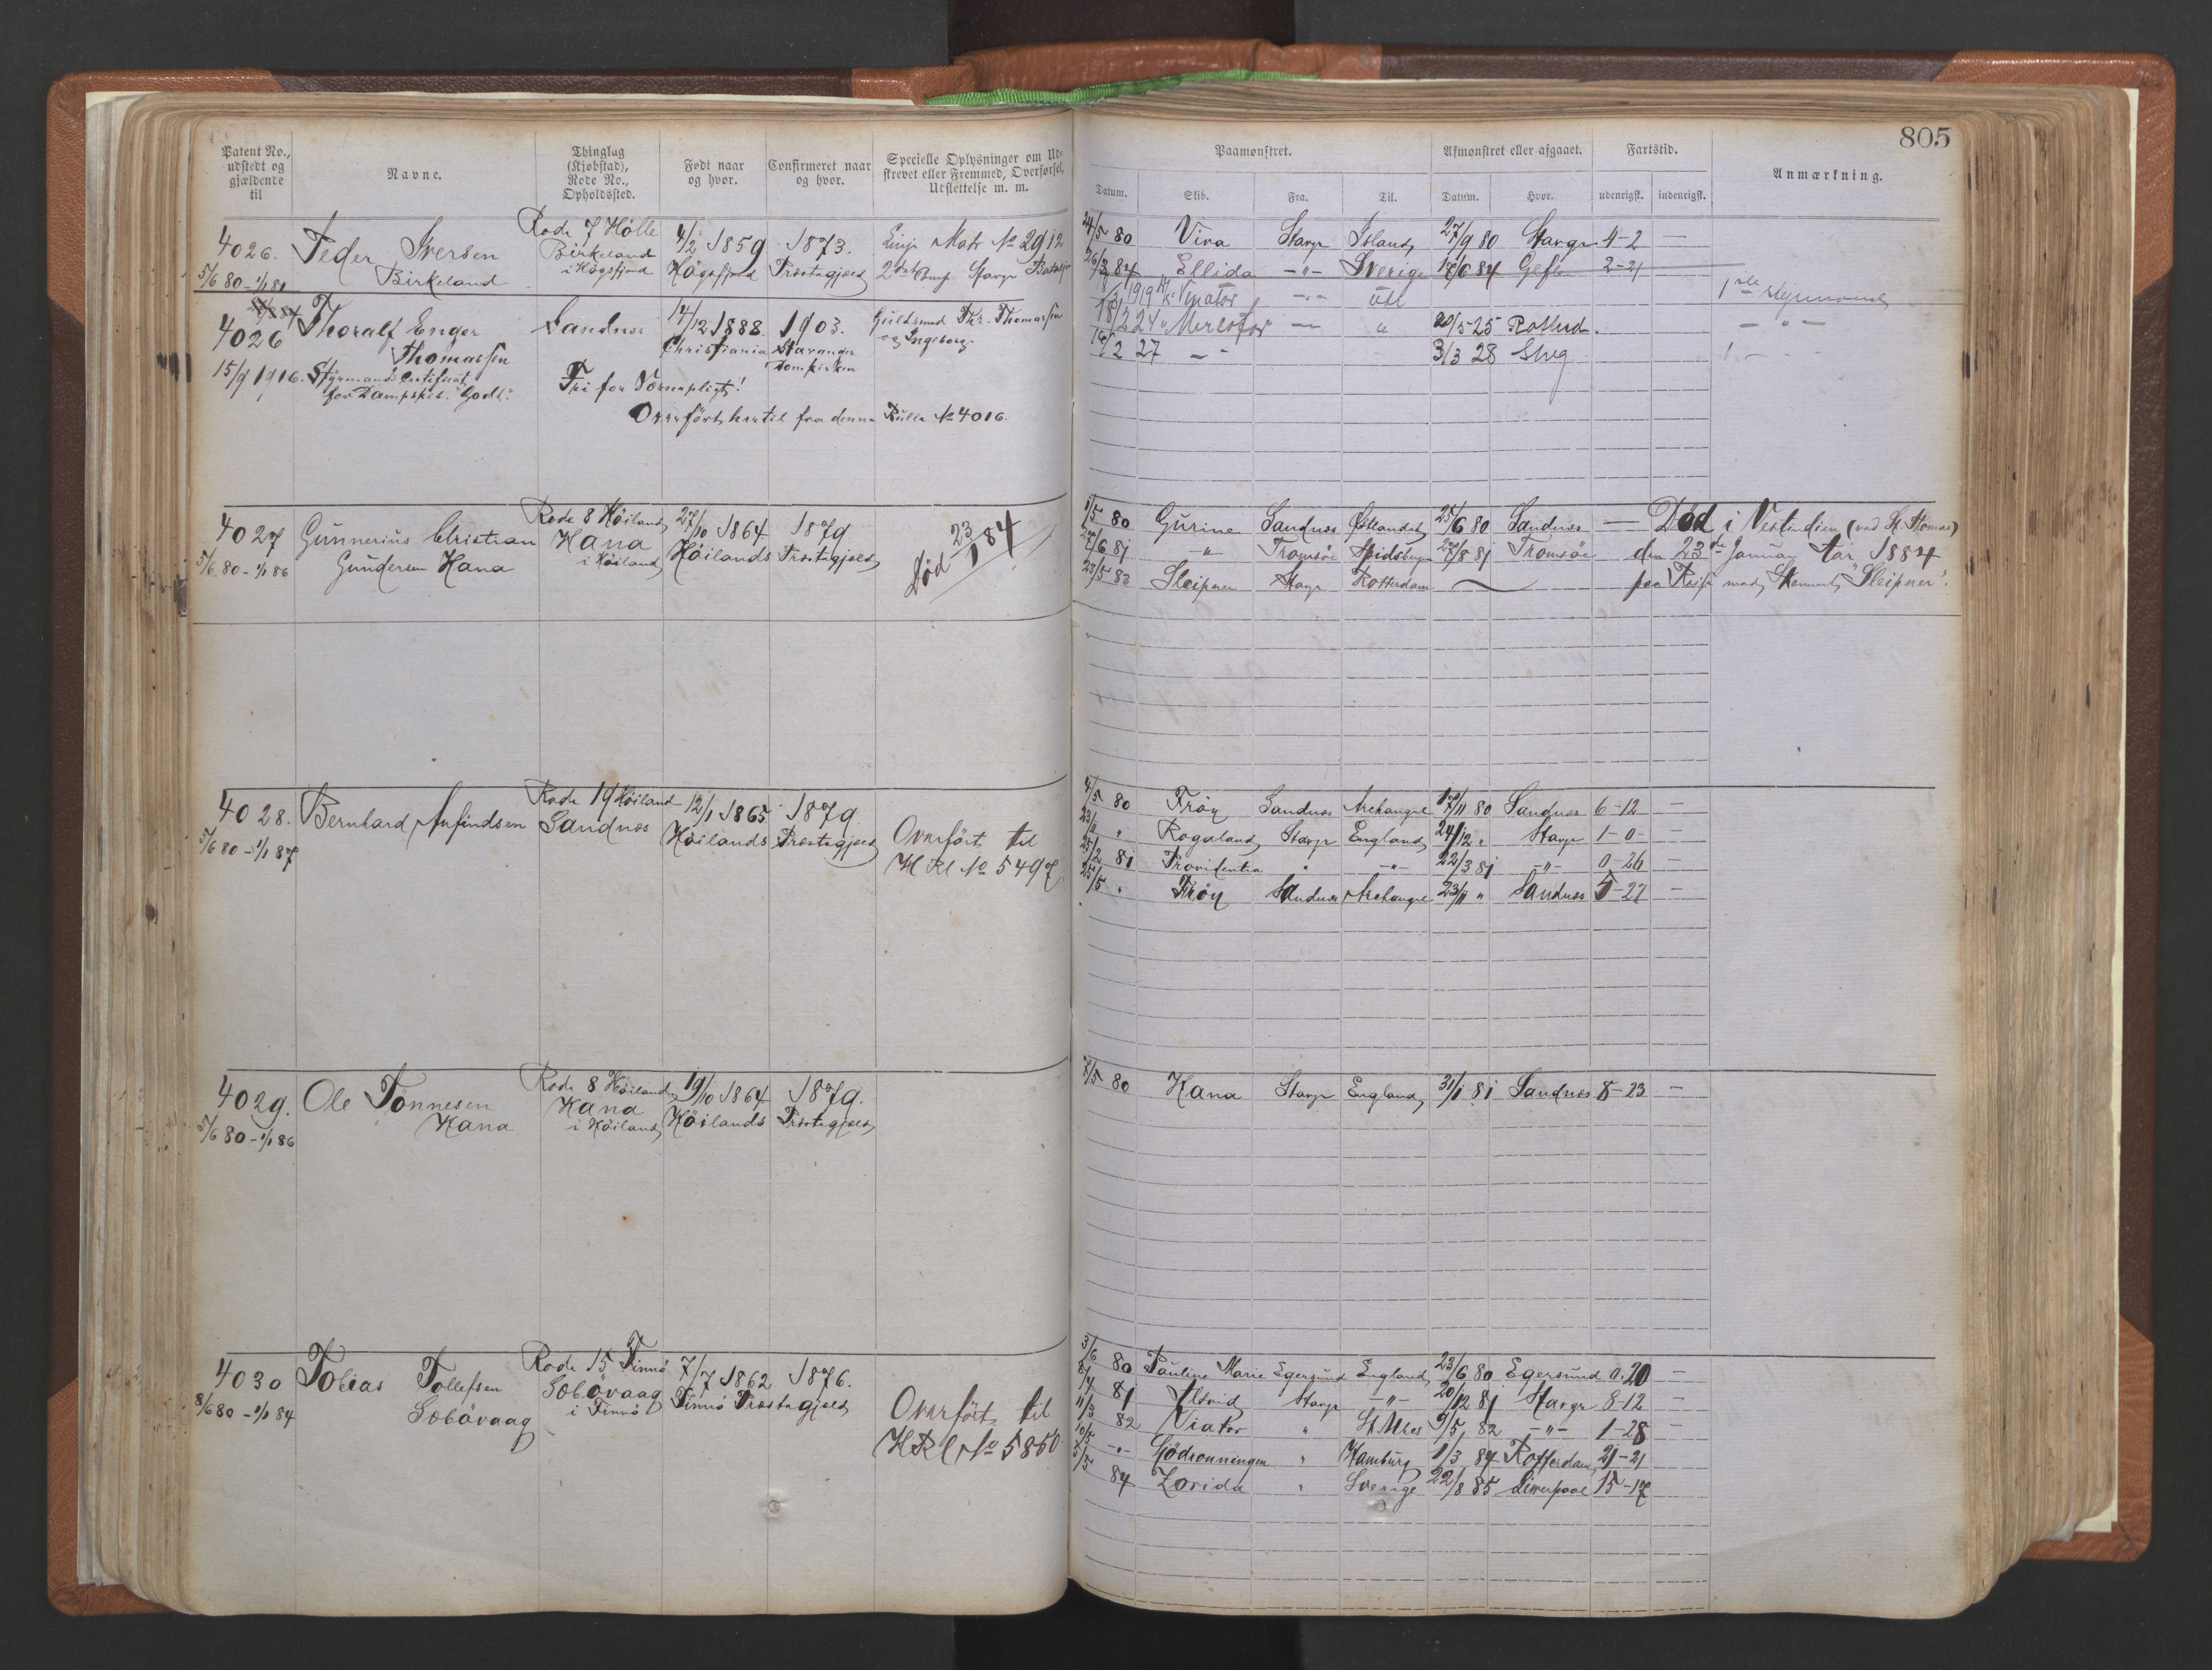 805
Patent No., udstedt og gjældende til
Navne.
Thinglag (Kjøbstad), Rode No., Opholdssted.
Født naar og hvor.
Confirmeret naar og hvor.
Specielle Oplysninger om Udskrevet eller Fremmed, Overførsel, Udslettelse m. m.
Paamønstret.
Afmønstret eller afgaaet.
Fartstid.
Anmærkning.
Datum. Skib. Fra. Til. Datum. Hvor. udenrigsk. indenrigsk.
4026. Peder Iversen Rode 7 Hölle 4/2 1859 1873. Linje Matr No 2912
Birkeland Birkeland i Högsfjord Högsfjord Præstegjæld 2det Comp Stavgr Batalj
5/6 80 - 1/1 81
24/5 80 Viva Stavgr Island 27/9 80 Stavgr 4-2 —
26/3 84 Ellida -"- Sverige 17/6 84 Gefle 2-21 —
4026 Thoralf Enger Sandnes 14/12 1888. 1903. Guldsmed Th. Thomassen
Thomassen Christiania Stavanger Domkirken og Ingeborg.
15/9 1916. Styrmands Certifikat for Dampskib. "Godt." Fri for Værnepligt!
Overført hertil fra denne Rulle No 4016.
1919 Viator -"- Udl 1ste Styrmand
18/2 24 " Mercator — " 20/5-25 Rotterd. - " -
16/2 27 - " 3/3 28 Shvg 1 -
4027 Gunnerius Christian Rode 8 Höiland 27/10 1864 1879
Gundersen Hana Hana i Höiland Höilands Præstegjæld Död 23/1 84
5/6 80 - 1/1 86
1/5 80 Gurine Sandnes Østlandet 25/6 80 Sandnes — Död i Vestindien (ved St. Thomas)
27/6 81 " Tromsöe Spidsbergen 27/8 81 Tromsöe den 23de Januar 1884
23/5 83 Sleipner Stavgr Rotterdam — paa Reise med Skonnert "Sleipner".
4028. Bernhard Anfindsen Rode 19 Höiland 12/1 1865 1879.
Sandnes Höilands Præstegjæld Overført til
5/6 80 - 1/1 87 H Rl No 5497
4/5 80 Fröy Sandnes Archangel 17/11 80 Sandnes 6-12 —
23/11 " Rogaland Stavgr England 24/12 " Stavgr 1-0- —
25/2 81 Providentia " -"- 22/3 81 -"- 0-26 —
25/5 " Fröy Sandnes Archangel 23/11 " Sandnes 5-27 —
4029. Ole Tönnesen Rode 8 Höiland 19/10 1864 1879.
Hana Hana i Höiland Höilands Præstegjæld
5/6 80 - 1/1 86
7/5 80 Hana Stavgr England 31/1 81 Sandnes 8-23 —
4030 Tobias Tollefsen Rode 15 Finnö 7/7 1862 1876.
Sobövaag Sobövaag i Finnö Finnö Præstegjæld Overført til
8/6 80 - 1/1 84 H Rl No 5850
3/6 80 Pauline Marie Egersund England 23/6 80 Egersund 0-20 —
8/4 81 Alsvid Stavgr -"- 20/12 81 Stavgr 8-12 —
11/3 82 Viator " St Ubes 9/5 82 -"- 1-28 —
10/5 -"- Gjödronningen " Hamburg 1/3 84 Rotterdam 21-21 —
5/5 84 Zorida " Sverige 22/8 85 Liverpool 15-17